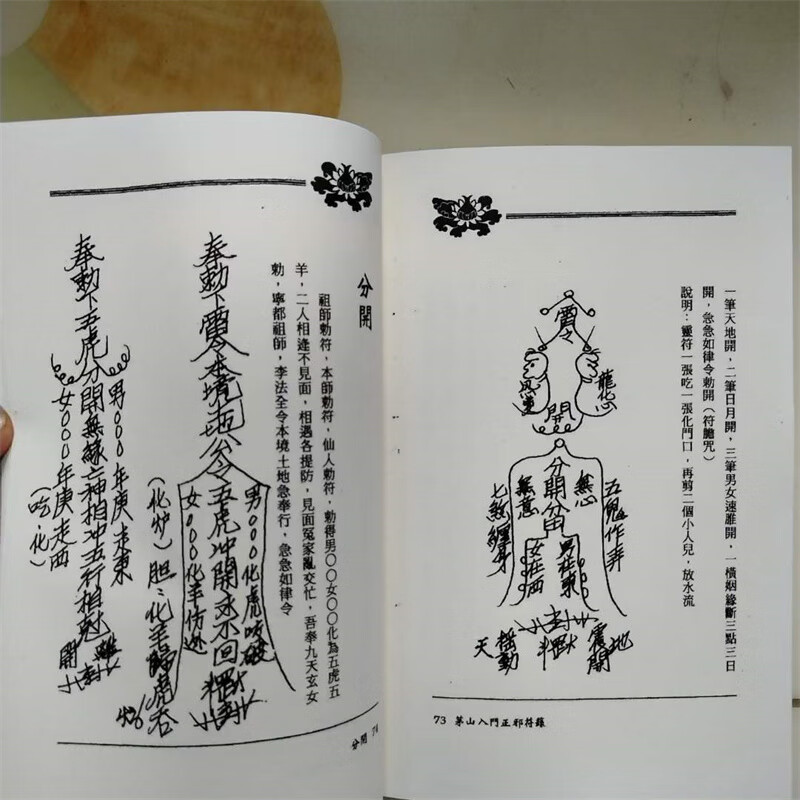 一筆天地開，二筆日月開，三筆男女速離開，一橫姻緣斷三點三日
開，急急如律令勅開（符膽咒）
說明：靈符一張吃一張化門口，再剪二個小人兒，放水流
龍化心
開
五鬼作弄
無心
分開
無意
七煞纏身
男在東
女在西
地
震開
搖動
天
73 茅山入門正邪符籙
分開
祖師勅符，本師勅符，仙人勅符，勅得男〇〇女〇〇化為五虎五
羊，二人相逢不見面，相遇各提防，見面冤家亂交忙，吾奉九天玄女
勅，寧都祖師，李法全令本境土地急奉行，急急如律令
奉勅下雷令本境土地公令五虎冲開永不回
男000化虎咬破
女000化羊
（化炉）
奉勅下五虎分開無緣亡神相冲五行相尅
男000年庚走東
女000年庚走西
（吃、化）
開
分開 74